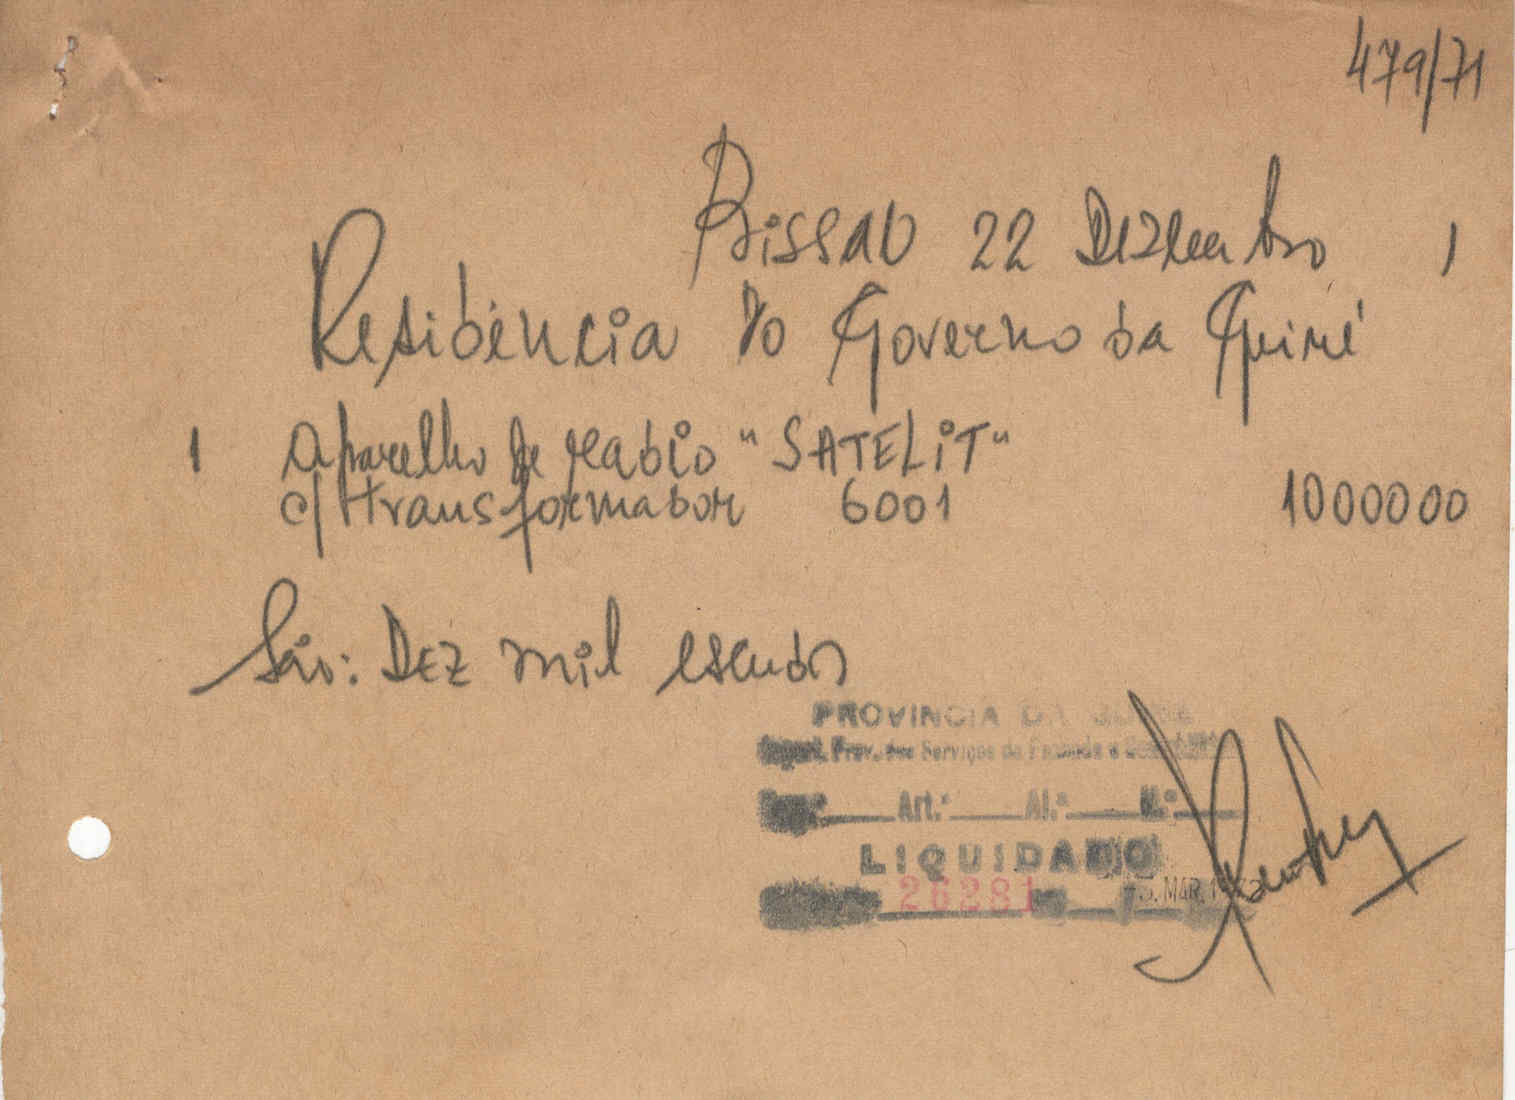 479/71
Bissau 22 Dezembro 1
Residência do Governo da Guiné
1 aparelho de radio "SATELIT"
c/ transformador 6001 1000000
São: Dez mil escudos
PROVINCIA DA GUINÉ
Prov. dos Serviços de Fazenda e
Art.º Al.ª N.º
LIQUIDADO
26281 MAR.